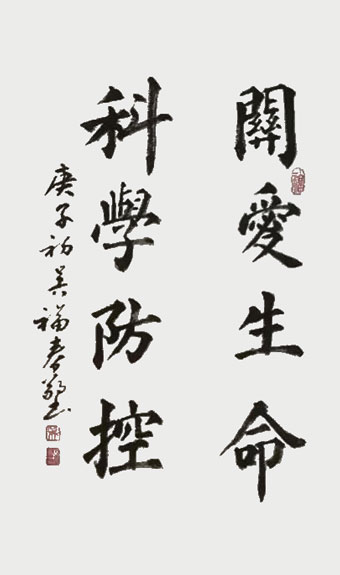 關愛生命
科學防控
庚子初吴福春